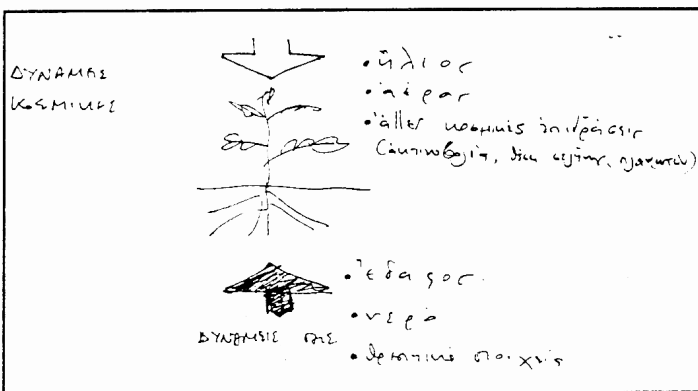 ΔΥΝΑΜΕΙΣ
ΚΟΣΜΙΚΕΣ
• ἥλιος
• ἀέρας
• ἄλλες κοσμικές ἐπιδράσεις
(ἀκτινοβολία, θέση σελήνης, πλανητῶν)
• ἔδαφος
• νερό
ΔΥΝΑΜΕΙΣ ΓΗΣ
• θρεπτικά στοιχεῖα